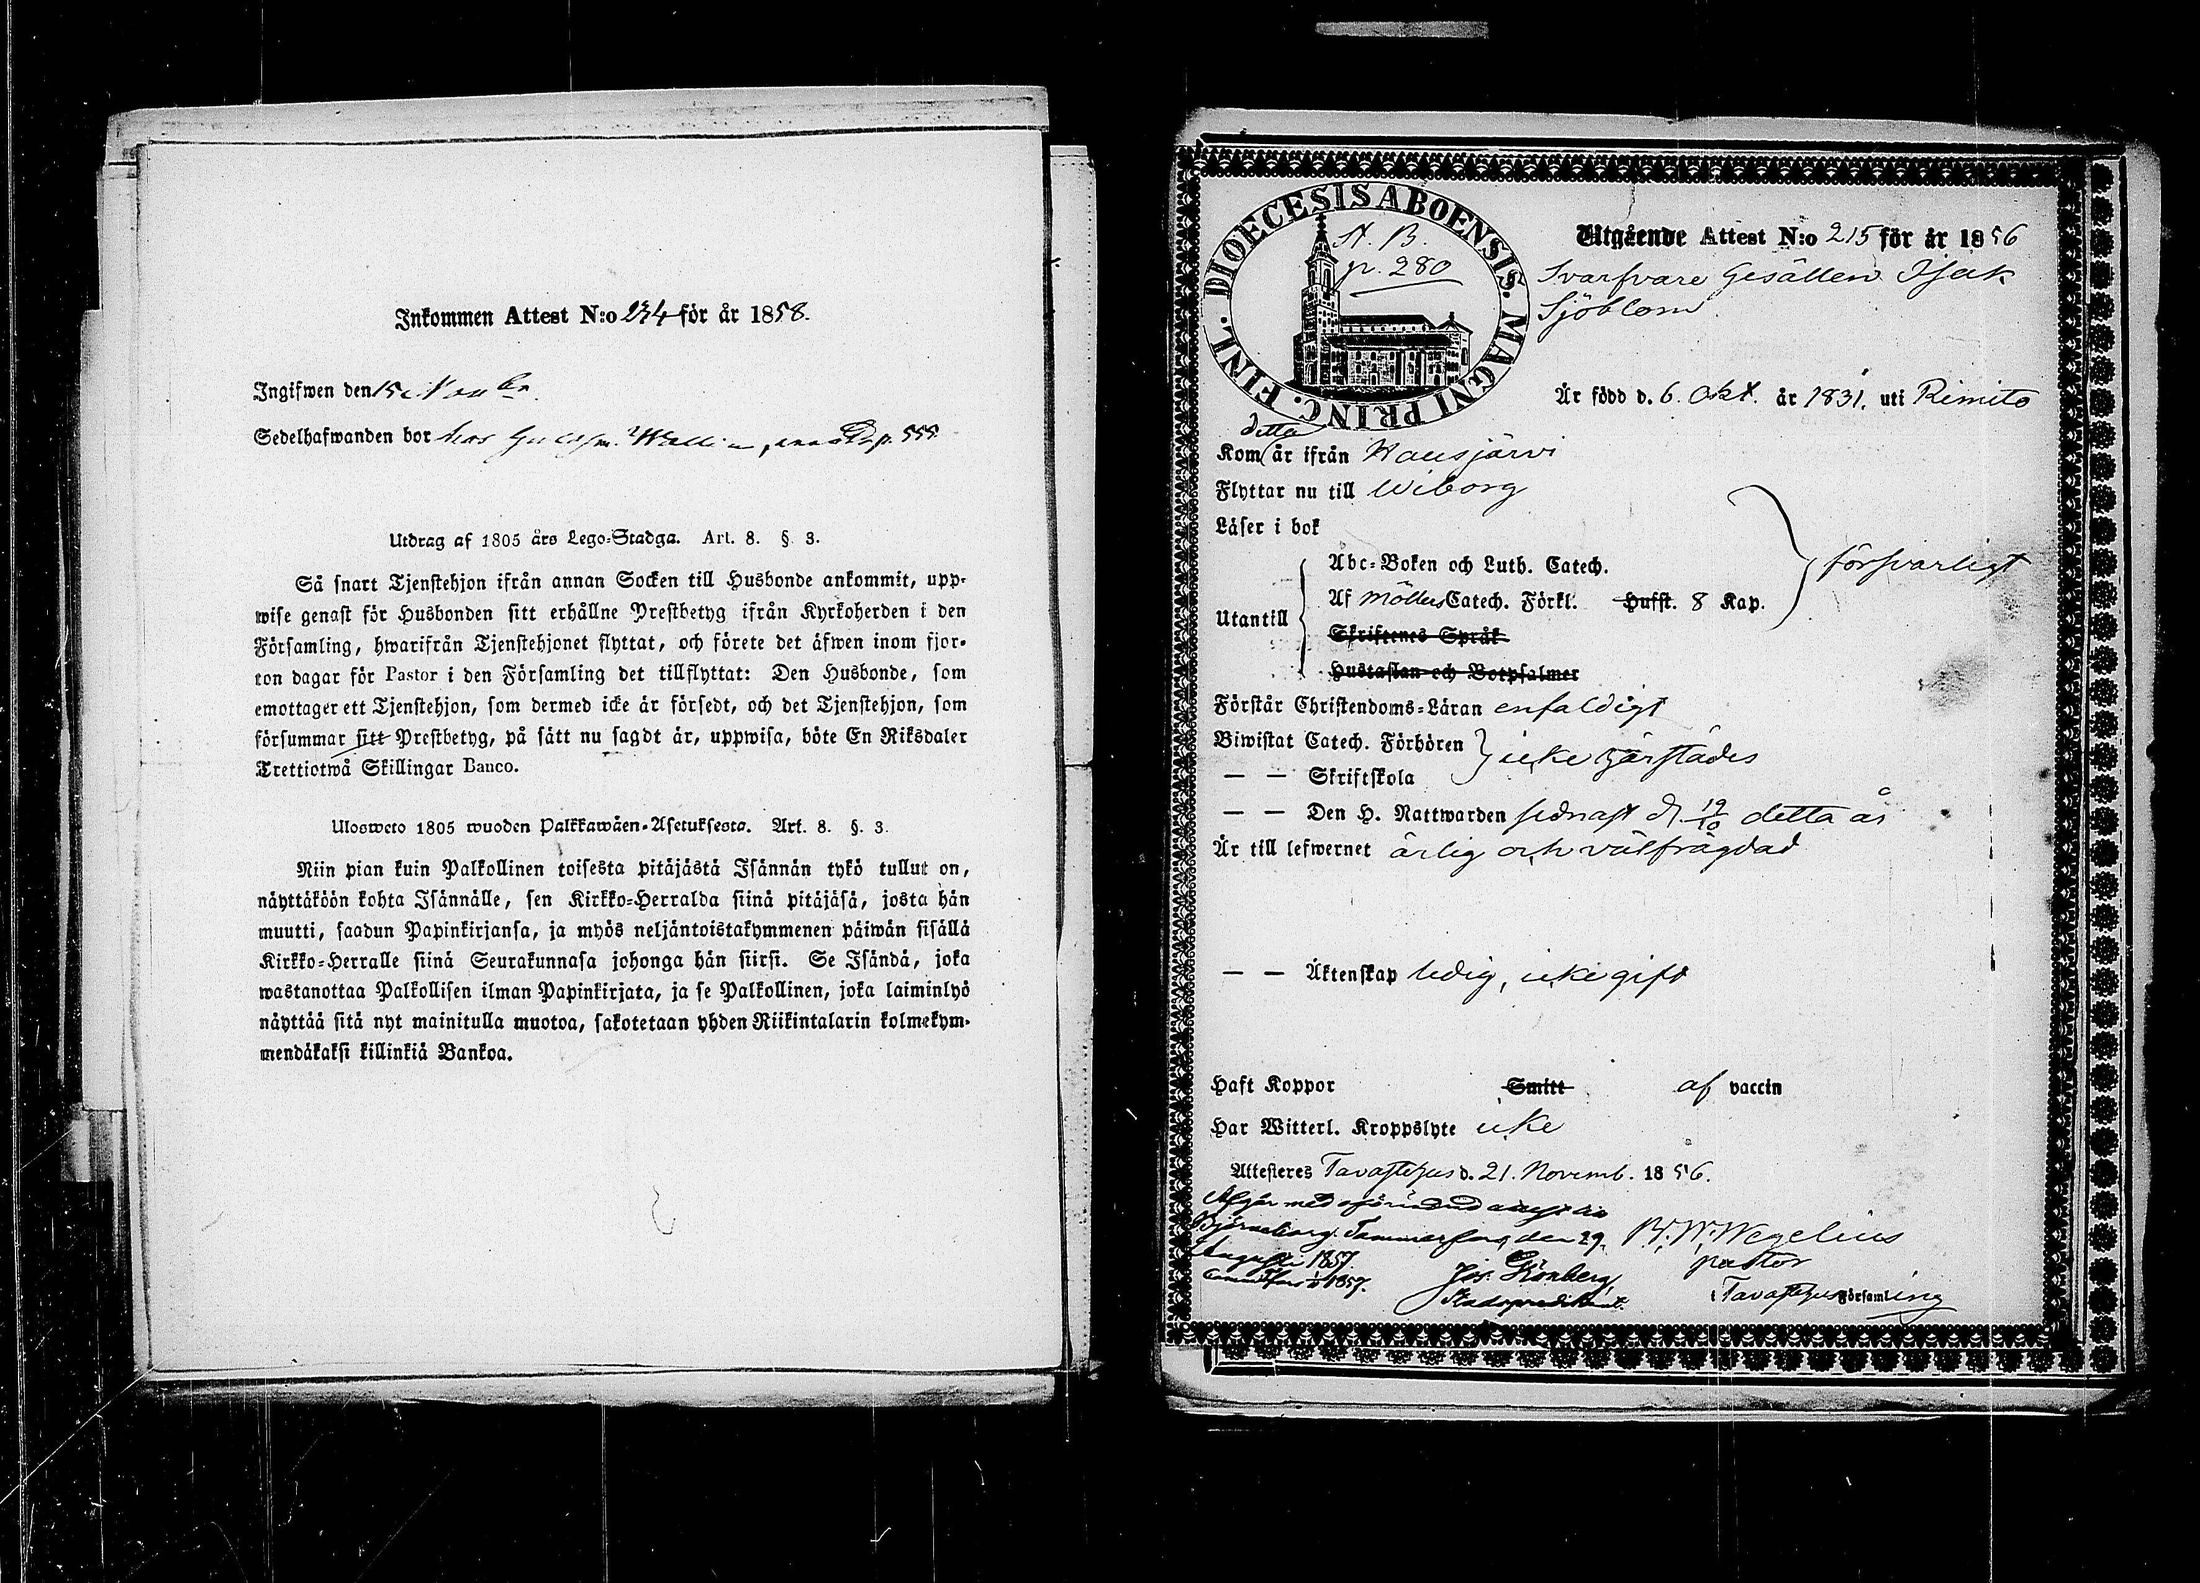 Inkommen Attest N:o 234 för år 1858.
Ingifwen den 15 Novbr.
Sedelhafwanden bor hos p. 555.
Utdrag af 1805 års Lego-Stadga. Art. 8. §. 3.
Så snart Tjenstehjon ifrån annan Socken till Husbonde ankommit, upp-
wise genast för Husbonden sitt erhållne Prestbetyg ifrån Kyrkoherden i den
Församling, hwarifrån Tjenstehjonet flyttat, och förete det äfwen inom fjor-
ton dagar för Pastor i den Församling det tillflyttat: Den Husbonde, som
emottager ett Tjenstehjon, som dermed icke är försedt, och det Tjenstehjon, som
försummar sitt Prestbetyg, på sätt nu sagdt är, uppwisa, böte En Riksdaler
Trettiotwå Skillingar Banco.
Ulosweto 1805 wuoden Palkkawäen-Asetuksesta. Art. 8. §. 3.
Niin pian kuin Palkollinen toisesta pitäjästä Isännän tykö tullut on,
näyttäköön kohta Isännälle, sen Kirkko-Herralda siinä pitäjäsä, josta hän
muutti, saadun Papinkirjansa, ja myös neljäntoistakymmenen päiwän sisällä
Kirkko-Herralle siinä Seurakunnasa johonga hän siirsi. Se Isändä, joka
wastanottaa Palkollisen ilman Papinkirjata, ja se Palkollinen, joka laiminlyö
näyttää sitä nyt mainitulla muotoa, sakotetaan yhden Riikintalarin kolmekym-
mendäkaksi killinkiä Bankoa.
DIOECESIS ABOENSIS. MAGNI PRINC. FINL.
St. B.
p. 280
Utgående Attest N:o 215 för år 1856
Svarfvare Gesällen Isak
Sjöblom
Är född d. 6. Okt. år 1831. uti Rimito
detta
Kom år ifrån Hausjärvi
Flyttar nu till Wiborg
Läser i bok
Abc-Boken och Luth. Catech.
försvarligt
Af Möllers Catech. Förkl. Hufst. 8 Kap.
Utantill
Skriftenes Språk
Hustaflan och Botpsalmer
Förstår Christendoms-Läran enfaldigt
Biwistat Catech. Förhören
icke härstädes
— — Skriftskola
— — Den H. Nattwarden sednast d. 19/10 detta år
Är till lefwernet ärlig och välfrägdad
— — Äktenskap ledig, icke gift
Haft Koppor Smitt af vaccin
Har Witterl. Kroppslyte icke
Attesteres Tavastehus d. 21. Novemb. 1856.
Afgår med oförändrad
Björneborg. Tammerfors, den 29.
Augusti 1857.
1857.
Jos. Grönberg
Stadspredikant.
B. W. Wegelius
pastor
i Tavastehus Församling